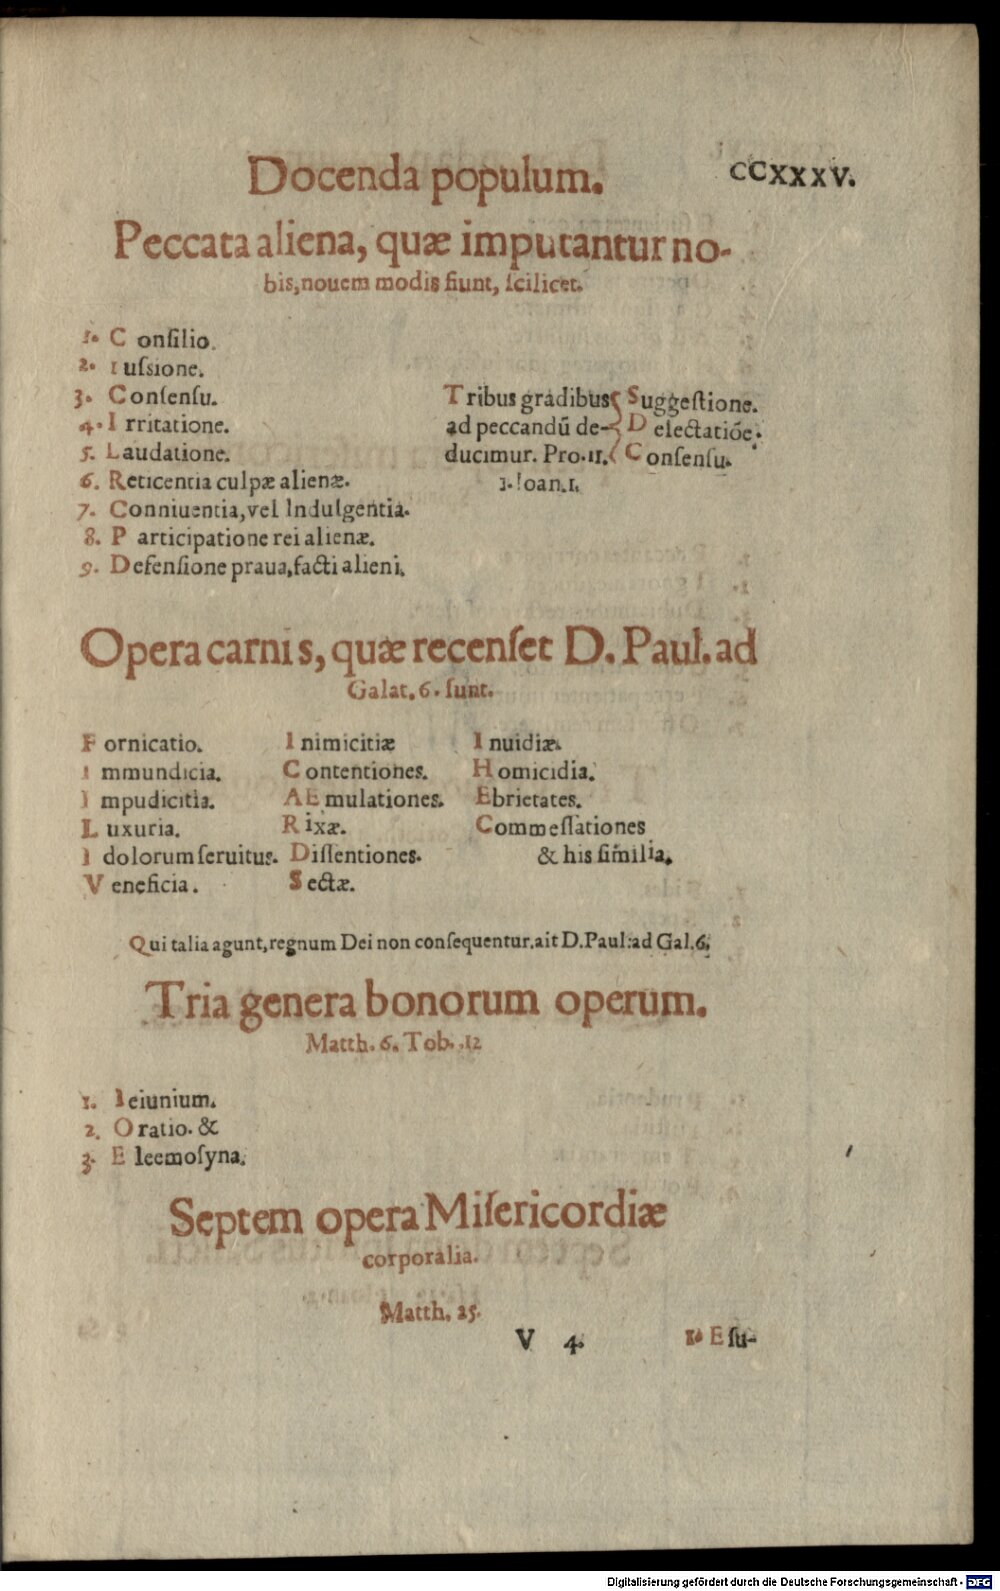 Docenda populum. CCXXXV.
Peccata aliena, quæ imputantur no-
bis, nouem modis fiunt, ſcilicet.
1. Conſilio.
2. Iuſsione.
3. Conſenſu.
4. Irritatione.
5. Laudatione.
6. Reticentia culpæ alienæ.
7. Conniuentia, vel Indulgentia.
8. Participatione rei alienæ.
9. Defenſione praua, facti alieni.
Tribus gradibus { Suggeſtione.
ad peccandū de- { Delectatiõe.
ducimur. Pro. 11. { Conſenſu.
1. Ioan. 1.
Opera carnis, quæ recenſet D. Paul. ad
Galat. 6. ſunt.
Fornicatio.
Immundicia.
Impudicitia.
Luxuria.
Idolorum ſeruitus.
Veneficia.
Inimicitiæ
Contentiones.
AEmulationes.
Rixæ.
Diſſentiones.
Sectæ.
Inuidiæ.
Homicidia.
Ebrietates.
Commeſſationes
& his ſimilia.
Qui talia agunt, regnum Dei non conſequentur. ait D. Paul: ad Gal. 6.
Tria genera bonorum operum.
Matth. 6. Tob. 12
1. Ieiunium.
2. Oratio. &
3. Eleemoſyna.
Septem opera Miſericordiæ
corporalia.
Matth. 25.
V 4. 1. Eſu-
Digitalisierung gefördert durch die Deutsche Forschungsgemeinschaft - DFG